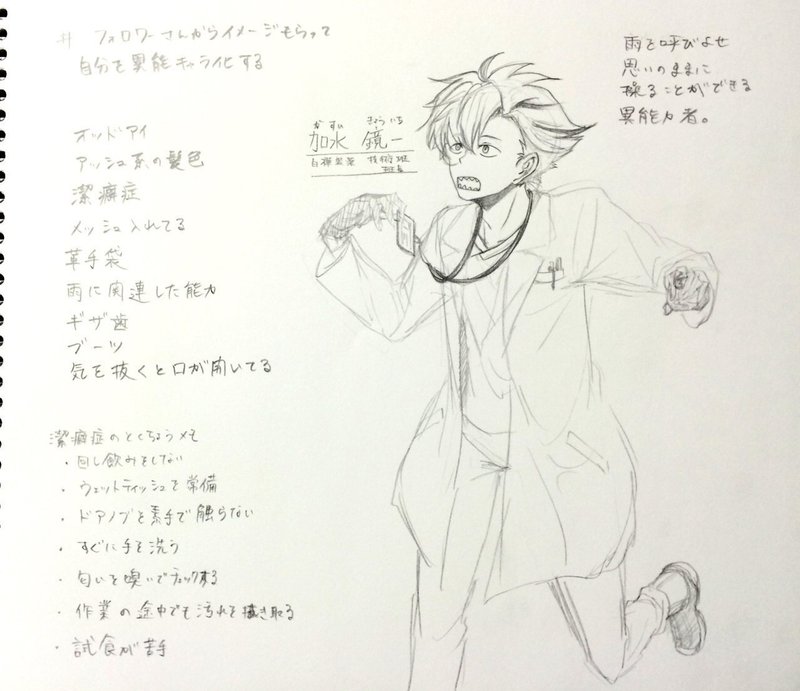 # フォロワーさんからイメージもらって
自分を異能キャラ化する
オッドアイ
アッシュ系の髪色
潔癖症
メッシュ入れてる
革手袋
雨に関連した能力
ギザ歯
ブーツ
気を抜くと口が開いてる
潔癖症のとくちょうメモ
・回し飲みをしない
・ウェットティッシュを常備
・ドアノブを素手で触らない
・すぐに手を洗う
・匂いを嗅いでチェックする
・作業の途中でも汚れを拭き取る
・試食が苦手
かすい きょういち
加水 鏡一
技術班
班長
雨を呼びよせ
思いのままに
操ることができる
異能力者。